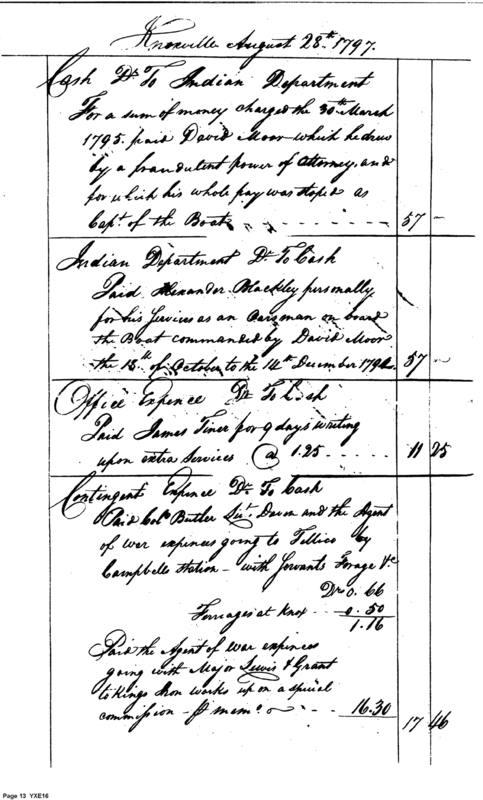 Knoxville August 28th 1797.
Cash Dr To Indian Department
For a sum of money charged the 30th March
1795. paid David Moor which he drew
by a fraudulent power of Attorney, and
for which his whole pay was stoped as
Capt. of the Boat - - - - - - 57 -
Indian Department Dr To Cash
Paid Alexander Blackley personally
for his Services as an Oarsman on board
the Boat commanded by David Moor
the 18th of October to the 14th December 1794. 57 -
Office Expence Dr To Cash
Paid James Tiner for 9 days writing
upon extra services @ 1.25 - - - - - 11 25
Contingent Expence Dr To Cash
Paid Colo Butler Lieut. and the Agent
of war expences going to Tellico by
Campbells Station - with Servants Forage &c
Drs 0.66
Ferriages at Knox - - 0.50
1.16
Paid the Agent of war expences
going with Major Lewis & Grant
to Kings Iron works up on a special
commission - memo - - - 16.30 17 46
Page 13 YXE16